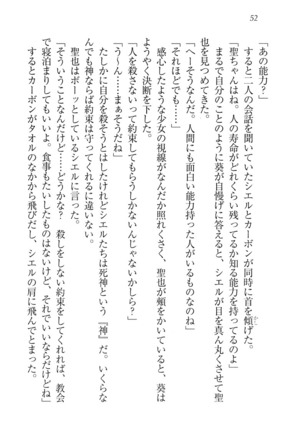 52
「あの能力？」
すると二人の会話を聞いていたシエルとカーボンが同時に首を傾げた。
「聖ちゃんはね。人の寿命がどれくらい残ってるか知る能力を持ってるのよ」
まるで自分のことのように葵が自慢げに答えると、シエルが目を真ん丸くさせて聖
也を見つめてきた。
「へーそうなんだ。人間にも面白い能力持った人がいるものなのね」
「それほどでも……」
感心したような少女の視線がなんだか照れくさく、聖也が頬をかいていると、葵は
ようやく決断を下した。
「人を殺さないって約束してもらうしかないんじゃないかしら？」
「う〜ん……まぁそうだね」
たしかに自分を殺そうとはしたけれどシエルたちは死神という『神』だ。いくらな
んでも神ならば約束は守ってくれるに違いない。
聖也はボーッとしているシエルに言った。
「そういうことなんだけど……どうかな？　殺しをしない約束をしてくれれば、教会
で寝泊まりしてもいいよ。食事もたいしたものはないけど、それでいいならだけどね」
するとカーボンがタオルのなかから飛びだし、シエルの肩に飛んでとまった。